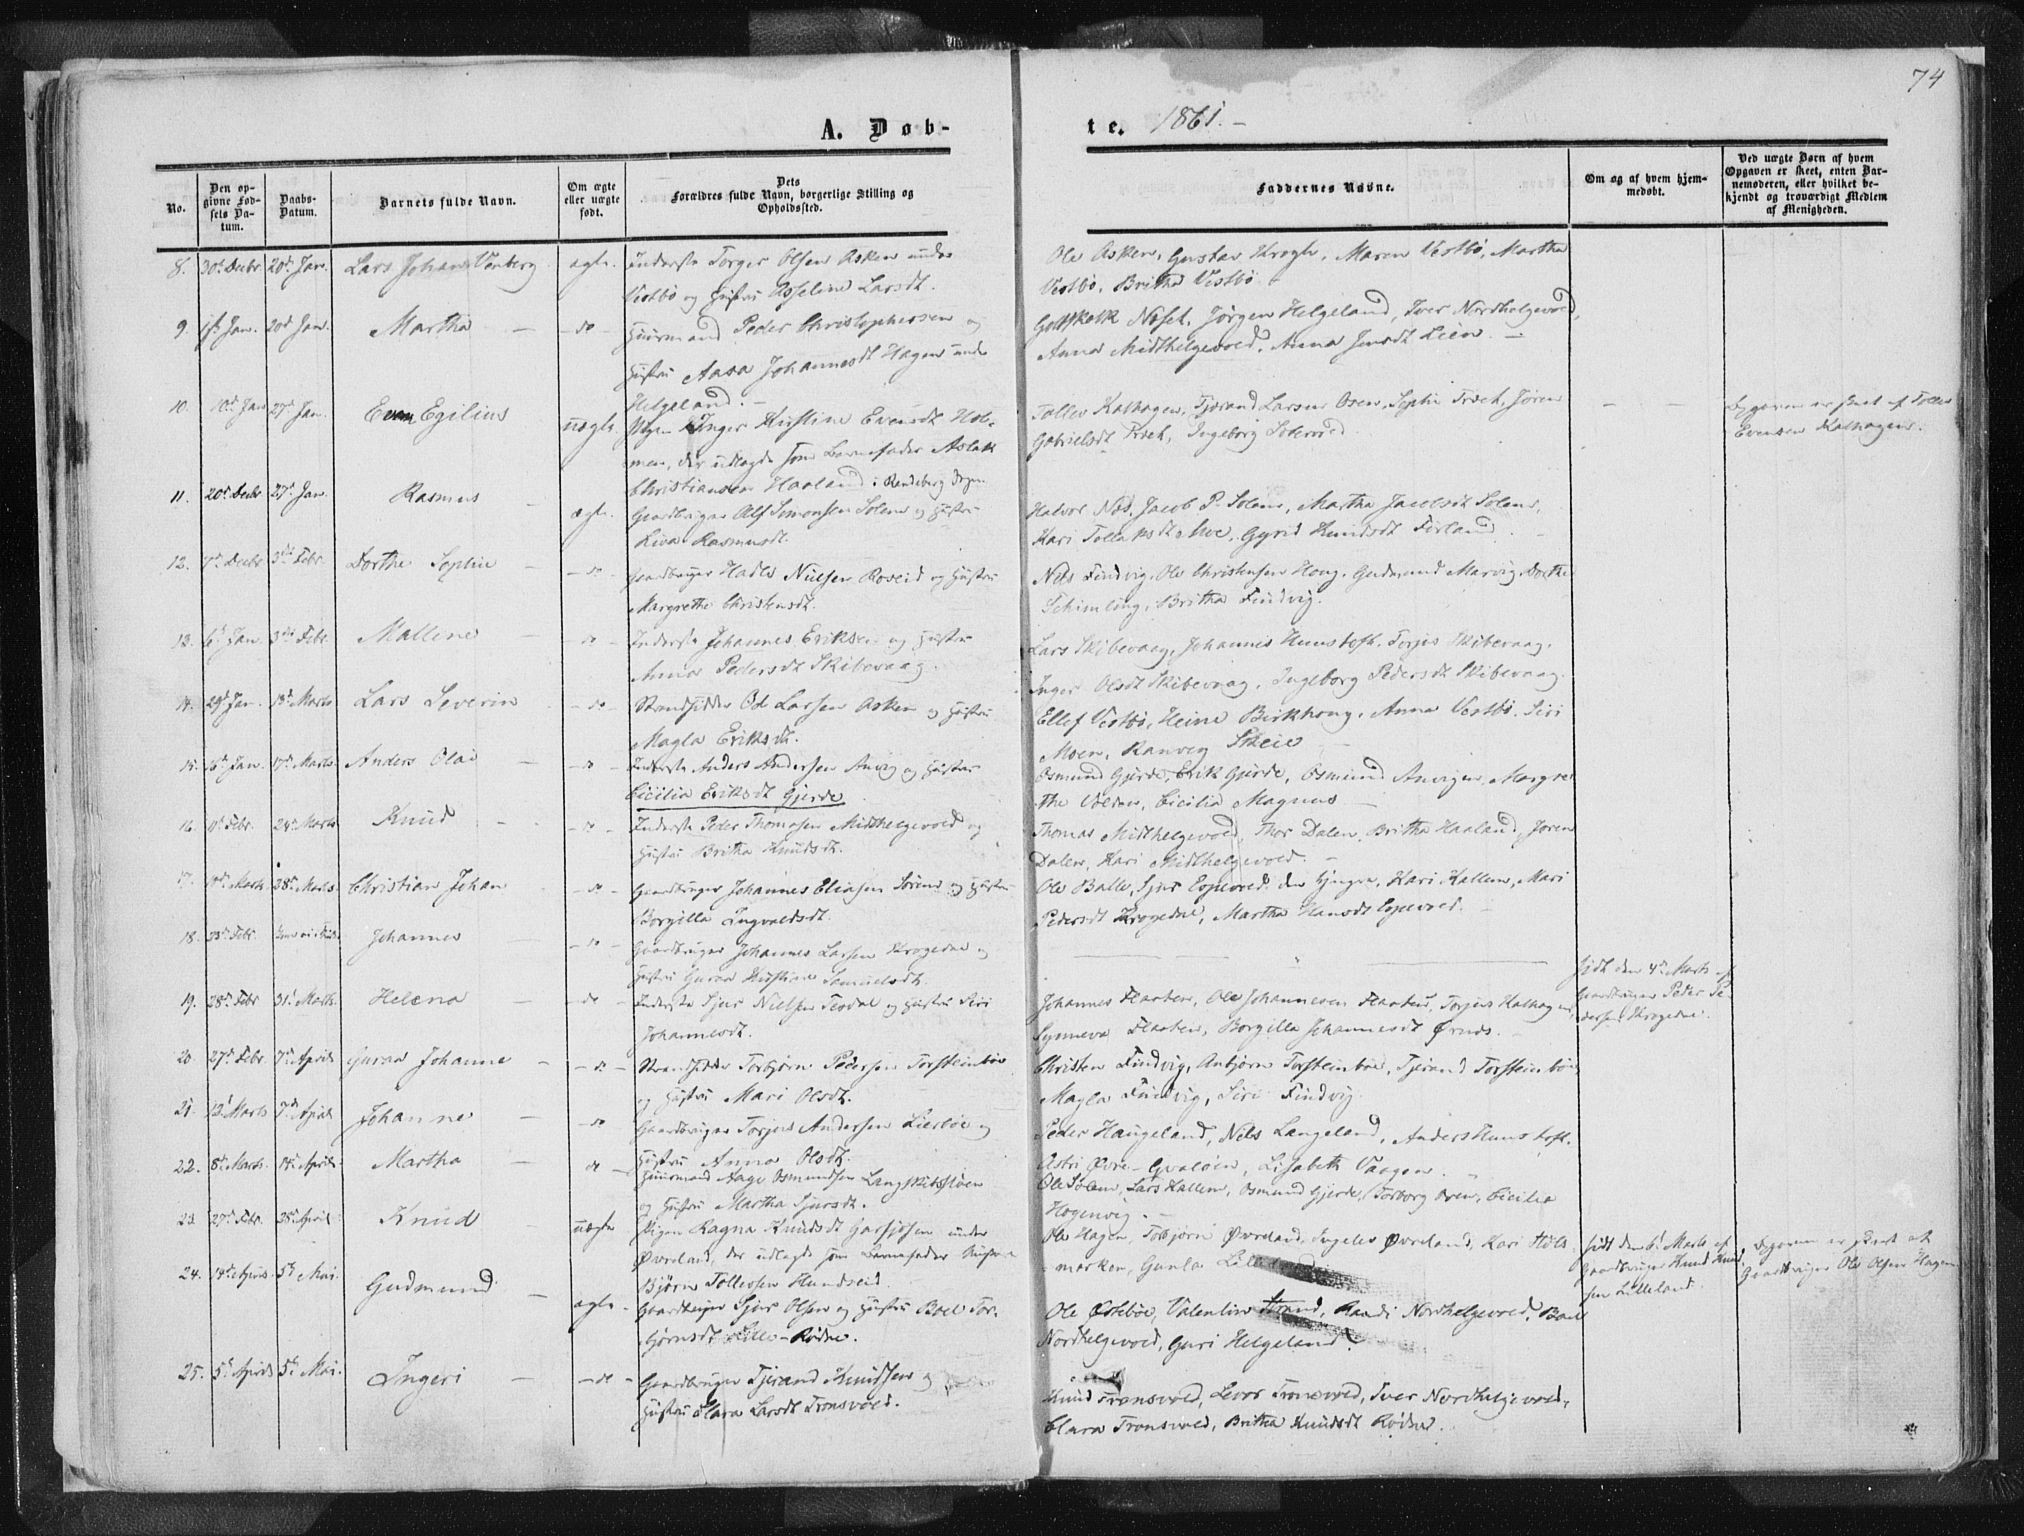 74
A. Døb-
te. 1861. -
No.
Den op-
givne Fød-
sels Da-
tum.
Daabs-
Datum.
Barnets fulde Navn.
Om ægte
eller uægte
født.
Dets
Forældres fulde Navn, borgerlige Stilling og
Opholdssted.
Faddernes Navne.
Om og af hvem hjem-
medøbt.
Ved uægte Børn af hvem
Opgaven er skeet, enten Bar-
nemoderen, eller hvilket be-
kjendt og troværdigt Medlem
af Menigheden.
8. 30d Decbr 20d Jan. Lars Johan Vanberg ægte. Inderste Torger Olsen Asken under
Vestbø og Hustru Asseline Larsdt.
Ole Asken, Gustav Krogh, Maren Vestbø, Martha
Vestbø, Britha Vestbø.
9. Jan. 20d Jan. Martha - do - Huusmand Peder Christophersen og
Hustru Aasa Johannesdt Hagen under
Helgeland. -
Gottskalk Næset, Jørgen Helgeland, Iver Nordhelgevold,
Anna Midthelgevold, Anna Jensdt Lien. -
10. 10d Jan 27d Jan. Even Egilius uægte. Pigen Inger Kirstine Evensdt Hol-
men, der udlagde som Barnefader Aslak
Christiansen Haaland i Rendeberg Sogn
Tollev Kalhagen, Tjerand Larsen Osen, Sophie Træet, Søren
Gabrielsdt Træet, Ingeborg
Opgaven er skeet af Tollev
Evensen Kalhagen.
11. 20d Decbr 27d Jan. Rasmus ægte. Gaardbruger Alf Simonsen Solem og Hustru
Liva Rasmusdt.
Halvor Næs, Jacob P. Solem, Martha Jacobsdt Solem,
Kari Tollaksdt Moe, Gyrid Knudsdt Førland.
12. 7d Decbr 3die Febr. Dorthe Sophie - do - Gaardbruger Hadle Nielsen Røveid og Hustru
Margrethe Christensdt.
Nels Findvig, Ole Christensen Houg, Gudmund Marvig, Dorthe
Schimling, Britha Findvig.
13. 6d Jan. 3die Febr. Mallene - do - Inderste Johannes Eriksen og Hustru
Anna Pedersdt Skibevaag.
Lars Skibevaag, Johannes Hunstoft, Torjus Skibevaag,
Inger Olsdt Skibevaag, Ingeborg Pedersdt Skibevaag.
14. 29d Jan. Marts Lars Severin - do - Strandsidder Od Larsen Asken og Hustru
Magla Eriksdt.
Ellef Vestbø, Heine Birkhoug, Anna Vestbø, Siri
Moen, Ranveg Skeie
15. 16d Jan. 17d Marts Anders Olai - do - Inderste Anders Andersen Anvig og Hustru
Cicilia Eriksdt Gjerde
Osmund Gjerde, Erik Gjerde, Osmund Anvigen, Margre-
the Volden, Cicilia Magnus -
16. Febr. 24d Marts Knud - do - Inderste Peder Thomasen Midthelgevold og
Hustru Britha Knudsdt.
Thomas Midthelgevold, Thor Dalen, Britha Haaland, Joren
Dalen, Kari Midthelgevold. -
17. Marts 28d Marts Christian Johan - do - Gaardbruger Johannes Eliasen og Hustru
Borgilla Ingvaldsdt.
Ole Balle, Sjur Espevold den Yngre, Kari Hallem, Mari
Pedersdt Krogedne, Martha Hansdt Espevold. -
18. Febr. Johannes - do - Gaardbruger Johannes Larsen Krogedne og
Hustru Guraa Kirstine Samuelsdt.
"
født den 4d Marts af
Gaardbruger Peder Pe-
dersen Krogedne.
19. 28d Febr 31d Marts Helena - do - Inderste Sjur Nielsen Tesdal og Hustru Siri
Johannesdt.
Johannes Flaaten, Ole Johannesen Flaaten, Torjus Kalhagen,
Synneva Flaaten, Borgilla Johannesdt Ørnes. -
20 27d Febr. 7d April Guraa Johanne - do - Strandsidder Torbjørn Pedersen Torsteinbøe
og Hustru Mari Olsdt.
Christen Findvig, Anbjørn Torsteinbøe, Tjerand Torsteinbøe,
Magla Findvig, Siri Findvig.
21. 12d Marts 7d April Johanne - do - Gaardbruger Torjus Andersen Lierbøe og
Hustru Anna Olsdt.
Peder Haugeland, Nels Langeland, Anders Hunstoft,
Astri Øvre-Qvaløen, Lisabeth Vaagen.
22. 8d Marts. April. Martha do - Huusmand Aage Osmundsen
og Hustru Martha Sjursdt.
Ole Solem, Lars Hallem, Osmund Gjerde, Torborg Osen, Cicilia
Hogenvig. -
23. 27d Febr. April Knud uægte Pigen Ragna Knudsdt under
Øvreland, der udlagde som Barnefader
Bjørn Tollevsen Hundseid.
Ole Hagen, Torbjørn Øvreland, Ingeleif Øvreland, Kari
marken, Gunla Lille
født den 6d Marts af
Gaardbruger Knud Knud-
sen Lilleland.
Opgaven er skeet af
Gaardbruger Ole Olsen Hagen
24. 14d April 5d Mai. Gudmund - ægte - Gaardbruger Sjur Olsen og Hustru Boel Tor-
bjørnsdt Lille-Rødne.
Ole Østebøe, Valentin Strand, Randi Nordhelgevold, Boel
Nordhelgevold, Guri Helgeland.
25. 5d April 5d Mai. Ingeri - do - Gaardbruger Tjerand Knudsen og
Hustru Clara Larsdt Tronsvold.
Knud Tronsvold, Levor Tronsvold, Iver Nordhelgevold,
Clara Tronsvold, Britha Knudsdt Rødne.